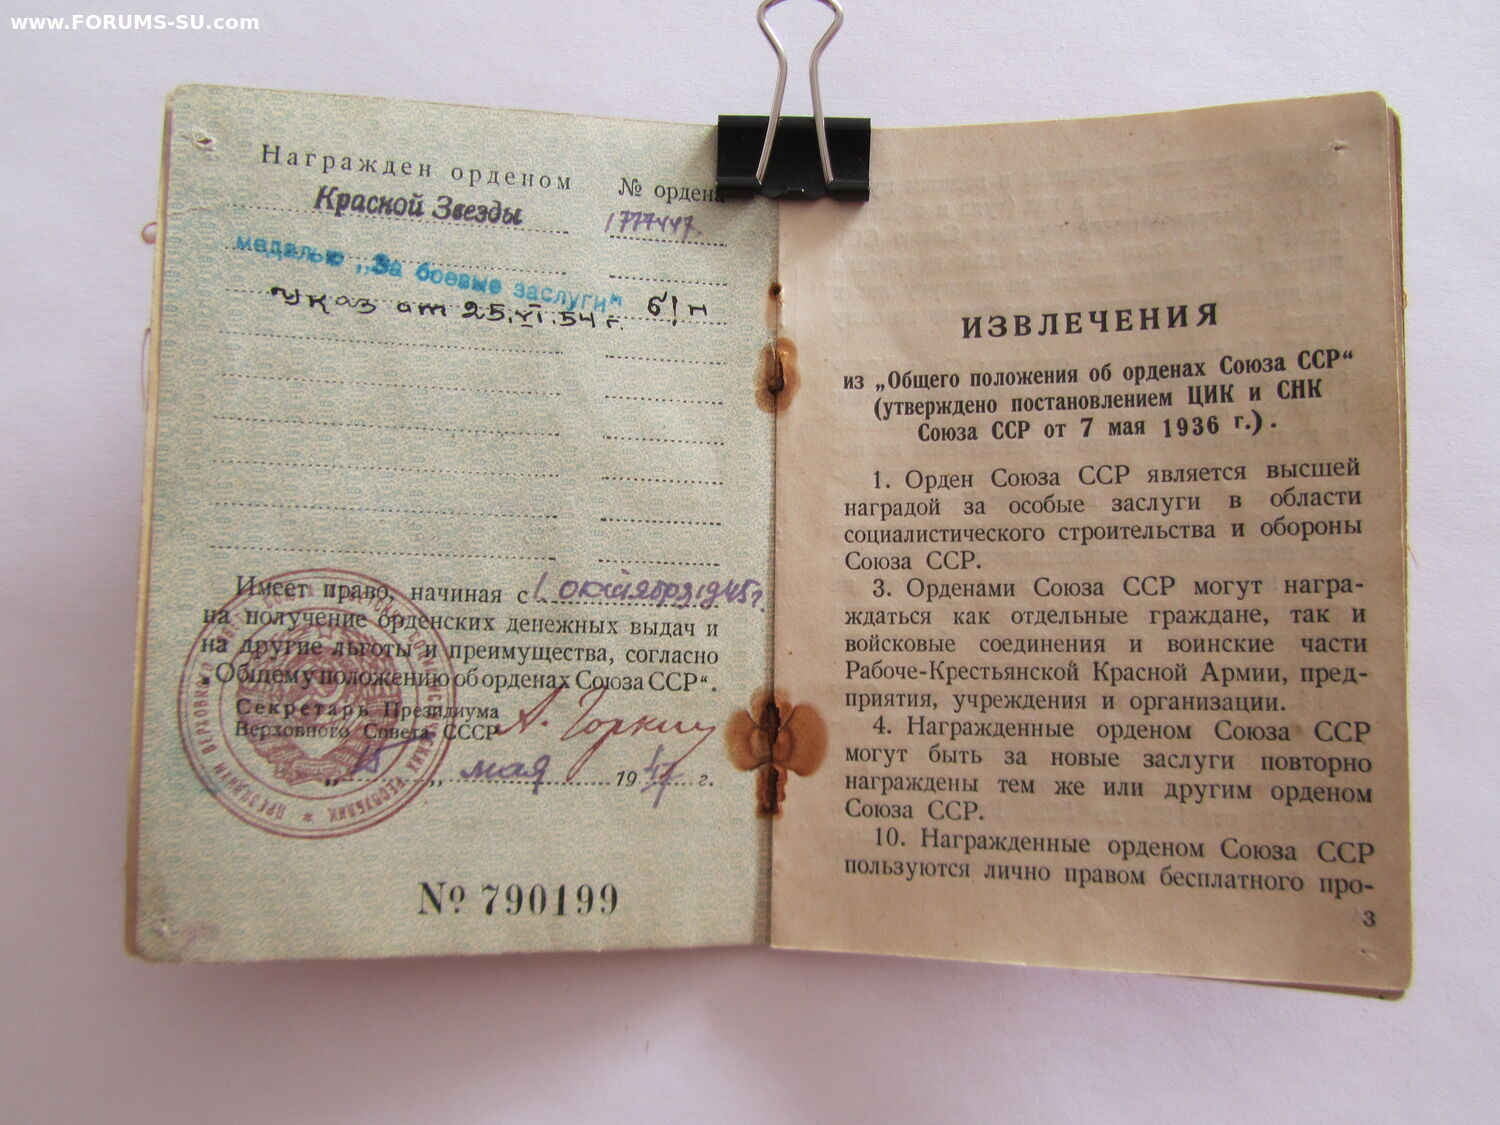 www.FORUMS-SU.com
Награжден орденом
№ ордена
Красной Звезды
1777447.
медалью „За боевые заслуги“
Указ от 25.VI.54 г.
б/н
Имеет право, начиная с 1 октября 1945 г.
на получение орденских денежных выдач и
на другие льготы и преимущества, согласно
„Общему положению об орденах Союза ССР“.
Секретарь Президиума
Верховного Совета СССР
А. Горкин
„15„ мая 1947 г.
№ 790199
ИЗВЛЕЧЕНИЯ
из „Общего положения об орденах Союза ССР“
(утверждено постановлением ЦИК и СНК
Союза ССР от 7 мая 1936 г.).
1. Орден Союза ССР является высшей
наградой за особые заслуги в области
социалистического строительства и обороны
Союза ССР.
3. Орденами Союза ССР могут награ-
ждаться как отдельные граждане, так и
войсковые соединения и воинские части
Рабоче-Крестьянской Красной Армии, пред-
приятия, учреждения и организации.
4. Награжденные орденом Союза ССР
могут быть за новые заслуги повторно
награждены тем же или другим орденом
Союза ССР.
10. Награжденные орденом Союза ССР
пользуются лично правом бесплатного про-
3